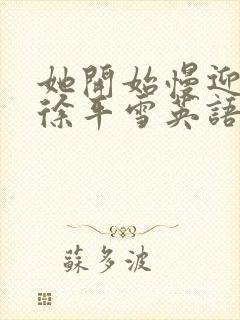 她開始慢迎
徐平雪英語
蘇多波